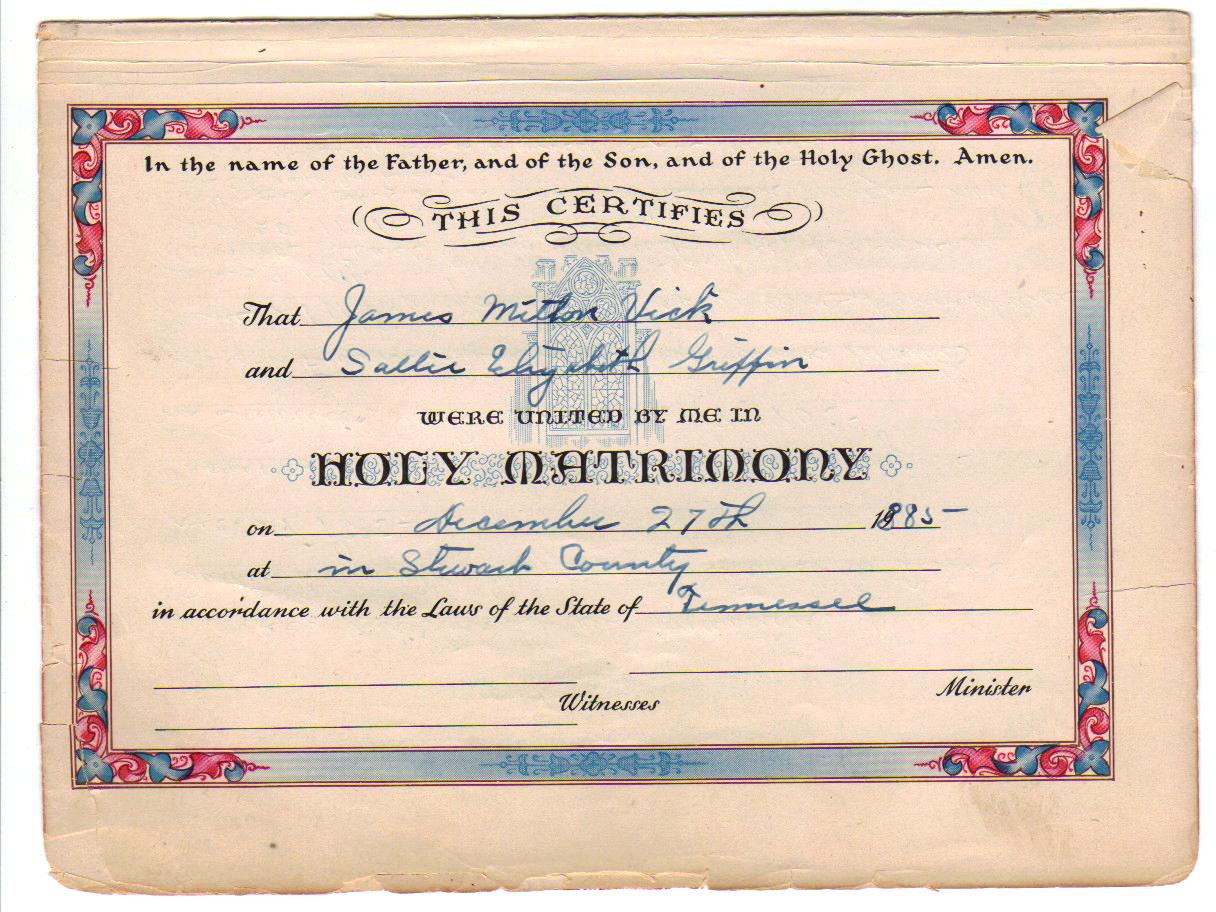 In the name of the Father, and of the Son, and of the Holy Ghost. Amen.
THIS CERTIFIES
That James Milton Vick
and Sallie Elizabeth Griffin
WERE UNITED BY ME IN
HOLY MATRIMONY
on December 27th 1885
at in Stewart County
in accordance with the Laws of the State of Tennessee
Minister
Witnesses